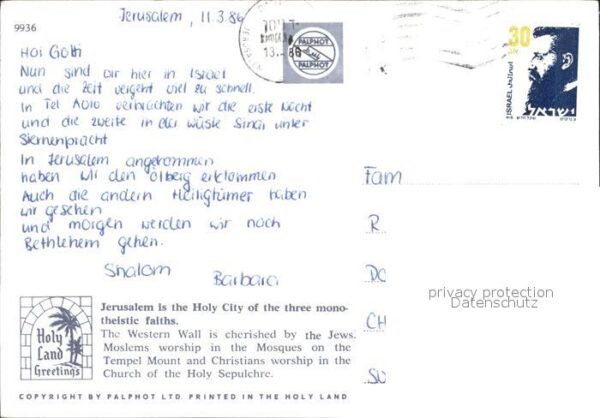 9936
Jerusalem, 11.3.86
PALPHOT
PALPHOT
30
ISRAEL
ישראל
Hoi Gotti
Nun sind wir hier in Israel
und die Zeit vergeht viel zu schnell.
In Tel Aviv verbrachten wir die erste Nacht
und die zweite in der Wüste Sinai unter
Sternenpracht
In Jerusalem angekommen
haben wir den Ölberg erklommen
Auch die andern Heiligtümer haben
wir gesehen
und morgen werden wir nach
Bethlehem gehen.
Shalom
Barbara
Fam
R
CH
privacy protection
Datenschutz
Holy
Land
Greetings
Jerusalem is the Holy City of the three mono-
theistic faiths.
The Western Wall is cherished by the Jews.
Moslems worship in the Mosques on the
Tempel Mount and Christians worship in the
Church of the Holy Sepulchre.
COPYRIGHT BY PALPHOT LTD. PRINTED IN THE HOLY LAND